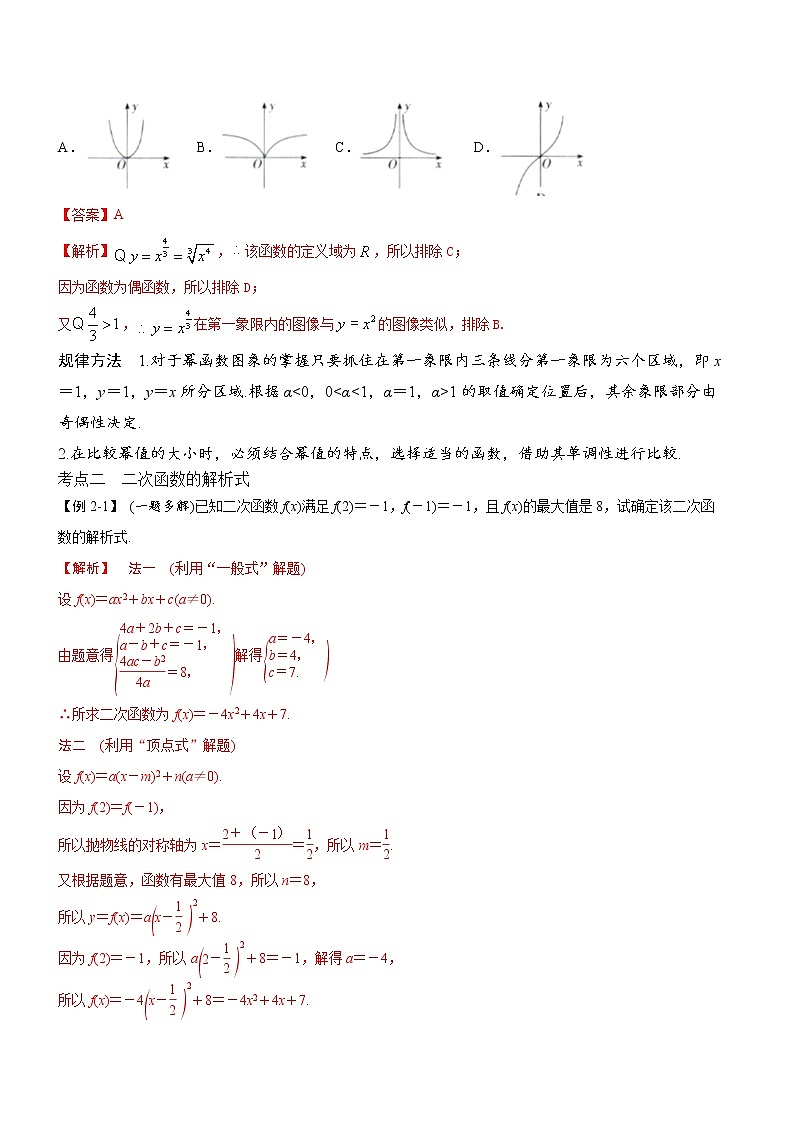 A. y O x B. y O x C. y O x D. y O x
【答案】A
【解析】Q y = x^{4/3} = ∛(x⁴)，∴该函数的定义域为 R，所以排除 C；
因为函数为偶函数，所以排除 D；
又Q 4/3 >1，∴ y = x^{4/3} 在第一象限内的图像与 y = x² 的图像类似，排除 B.
规律方法 1.对于幂函数图象的掌握只要抓住在第一象限内三条线分第一象限为六个区域，即 x
=1，y=1，y=x 所分区域.根据 α<0，0<α<1，α=1，α>1 的取值确定位置后，其余象限部分由
奇偶性决定.
2.在比较幂值的大小时，必须结合幂值的特点，选择适当的函数，借助其单调性进行比较.
考点二 二次函数的解析式
【例 2-1】 (一题多解)已知二次函数 f(x)满足 f(2)=-1，f(-1)=-1，且 f(x)的最大值是 8，试确定该二次函
数的解析式.
【解析】 法一 (利用“一般式”解题)
设 f(x)=ax²+bx+c(a≠0).
由题意得{4a+2b+c=-1，a-b+c=-1，(4ac-b²)/(4a)=8，)解得{a=-4，b=4，c=7.)
∴所求二次函数为 f(x)=-4x²+4x+7.
法二 (利用“顶点式”解题)
设 f(x)=a(x-m)²+n(a≠0).
因为 f(2)=f(-1)，
所以抛物线的对称轴为 x=(2+（-1）)/2=1/2，所以 m=1/2.
又根据题意，函数有最大值 8，所以 n=8，
所以 y=f(x)=a(x-1/2)²+8.
因为 f(2)=-1，所以 a(2-1/2)²+8=-1，解得 a=-4，
所以 f(x)=-4(x-1/2)²+8=-4x²+4x+7.